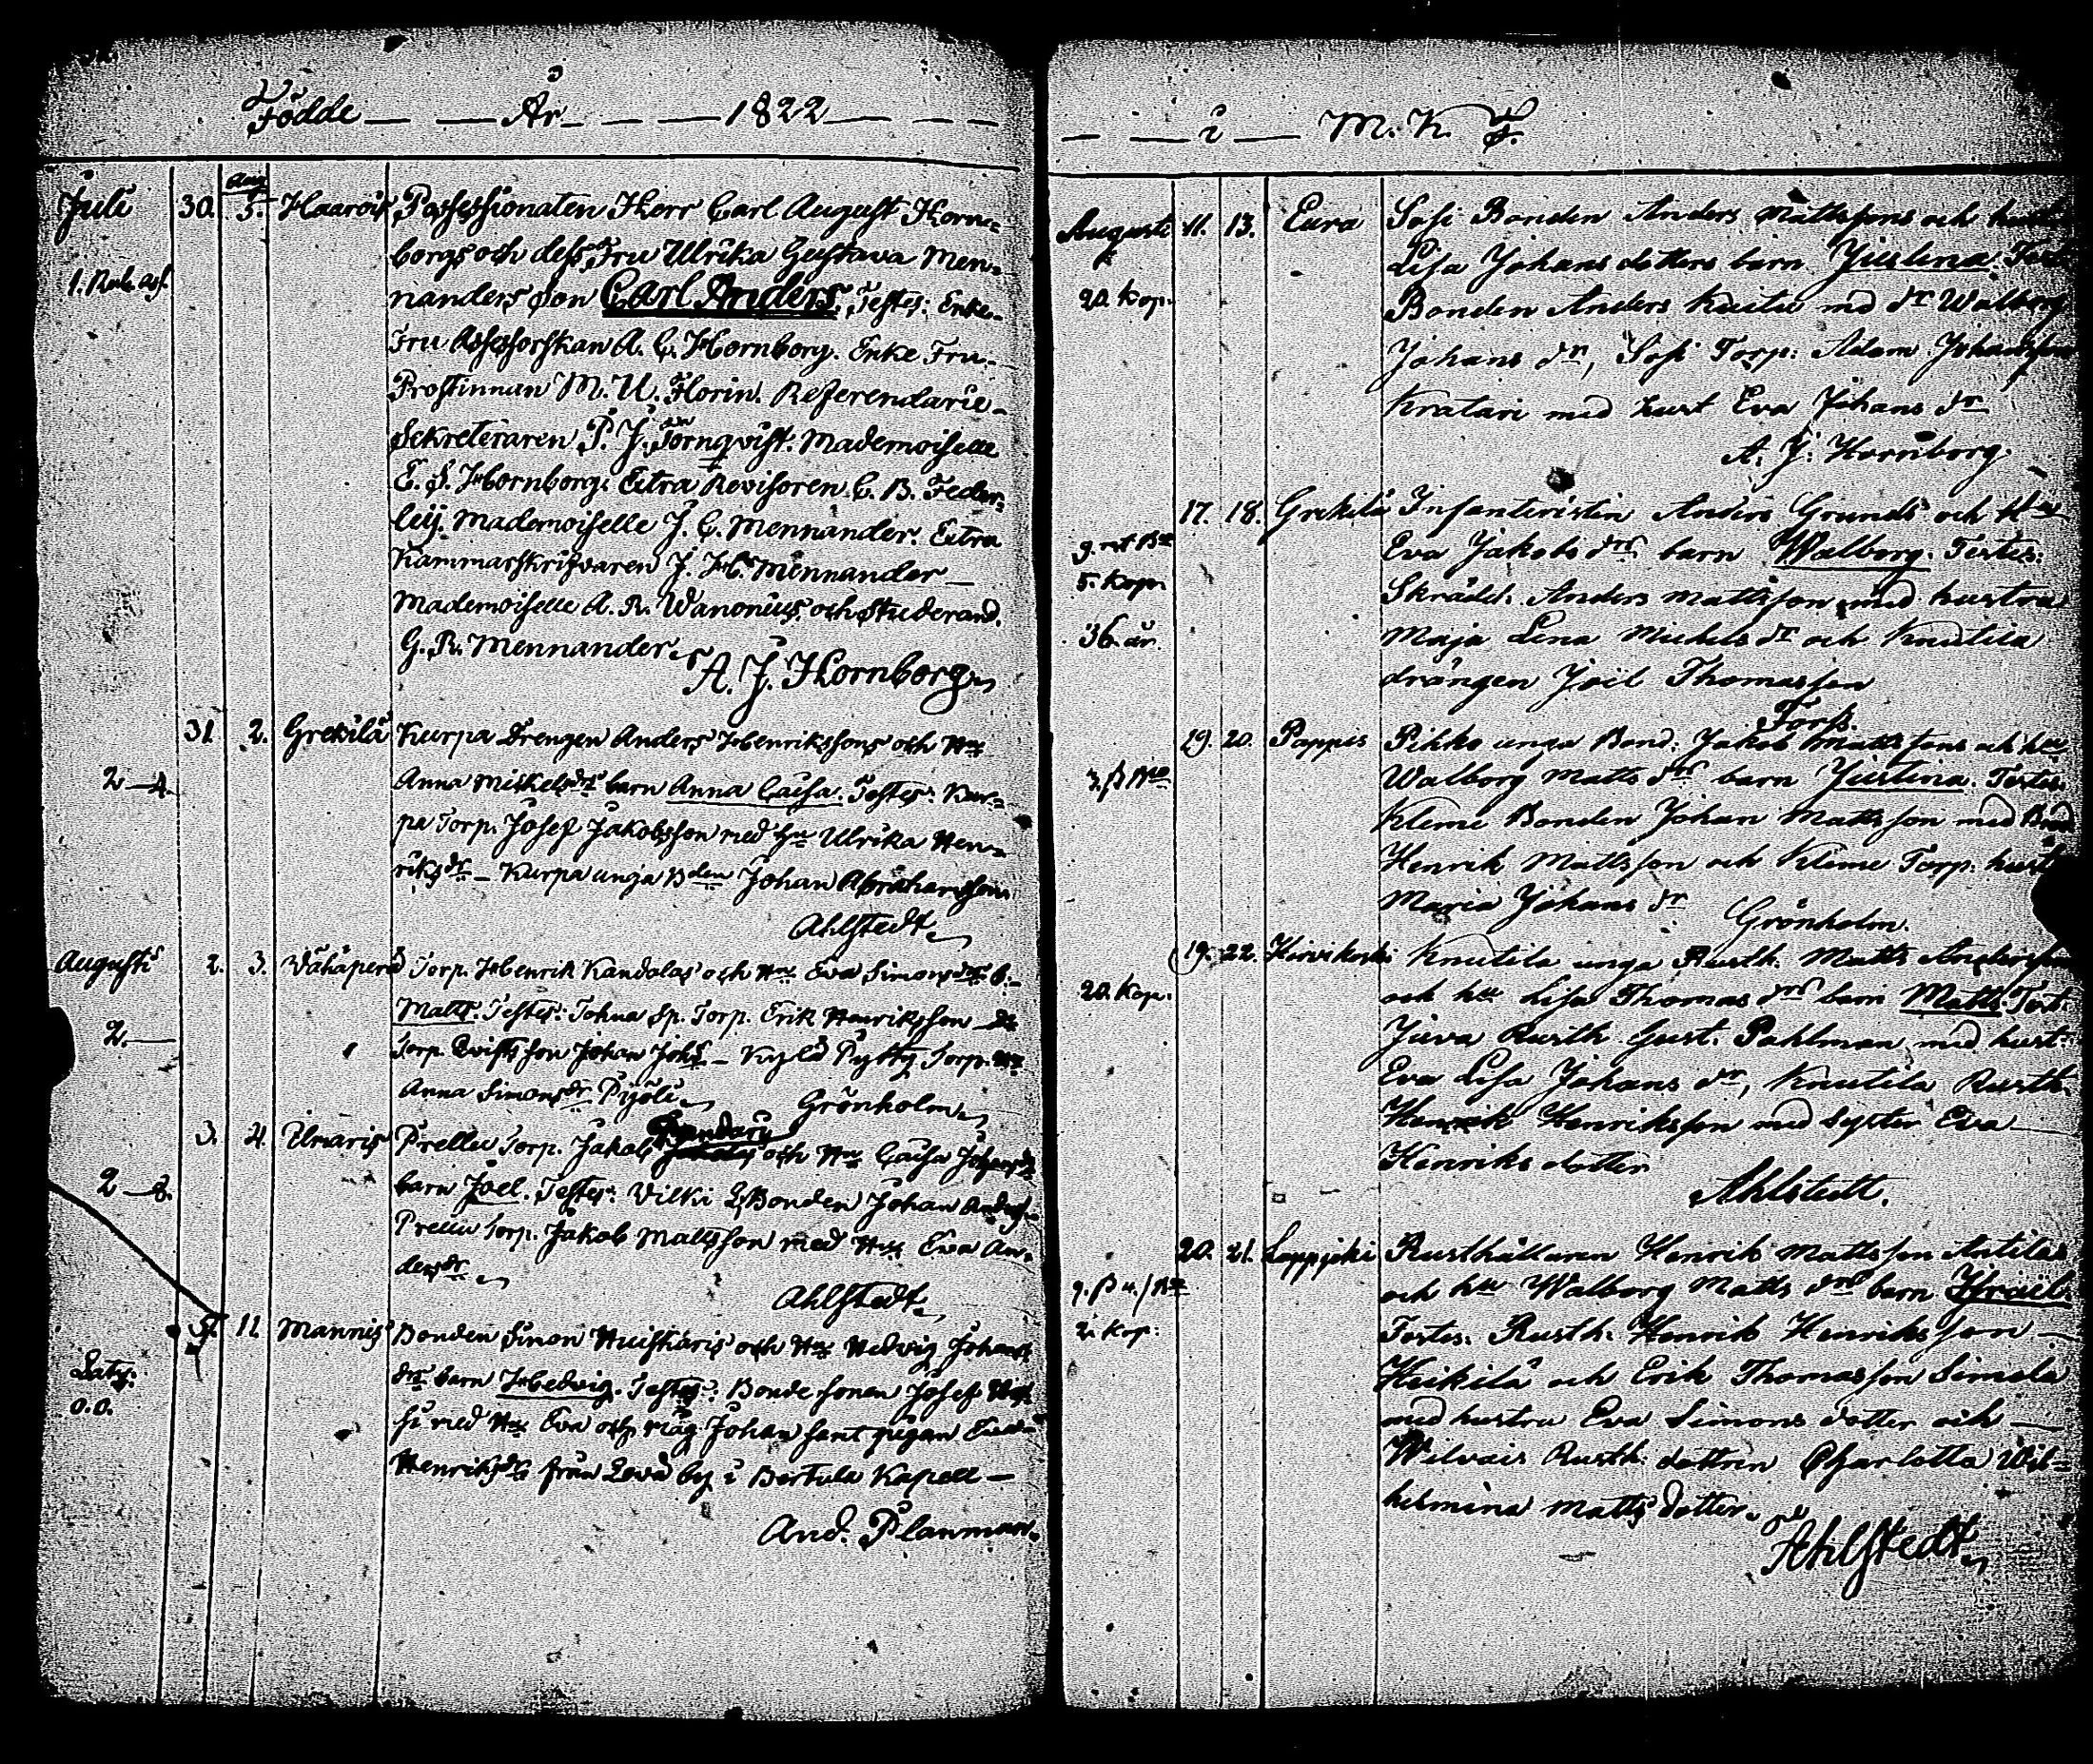 Födde — — År — — — 1822 — — —
Juli 30. Aug 5. Haarois Possessionaten Herr Carl August Horn-
borgs och dess Fru Ulrika Gustava Men-
1. Rub. asf.
nanders son Carl Anders. Testes: Enke-
Fru Assessorskan A. C. Hornborg. Enke Fru-
Prostinnan M. U. Florin. Referendarie-
Sekreteraren P. J. Törnqvist. Mademoiselle
E. S. Hornborg. Extra Revisoren C. B. Feder-
leij. Mademoiselle J. C. Mennander. Extra
Kammarskrifvaren J. H. Mennander —
Mademoiselle A. R. Wanonius och Studerand.
G. R. Mennander.
A. J. Hornborg
31. 2. Grekilä Kurpa Drengen Anders Henrikssons och Hus
2—4. Anna Mickelsdrs barn Anna Caisa. Testes: Kur-
pa Torp. Josef Jakobsson med Hu Ulrika Hen-
riksdr — Kurpa unga Bden Johan Abrahamsson.
Ahlstedt
Augusti 2. 3. Vähäperä Torp. Henrik Kandolas och Hus Eva Simonsdrs b.
Matts. Testes: Tohna Sp. Torp. Erik Henriksson
2.—
Torp. Johan Johs — Kylä Pytty Torp.
Anna Simonsdr Pyöli
Grönholm
3. 4. Unaris Prellu Torp. Jakob och Hus Caisa
2—8. barn Joel. Testes: Vilki Bonden Johan
Prellu Torp. Jakob Mattsson med Hu Eva An-
dersdr
Ahlstedt
5. 11. Mannis Bonden Simon Huiskaris och Hus Hedvig Johans
Saty: drs barn Hedvig. Testes: Bonde sonen Josef
o.o. med Hu Eva och måg Johan samt pigan
Henriksdr från Levä by i Bertula Kapell —
And. Planman.
— — i — M. K. F.
Augusti 11. 13. Eura Sosi Bonden Anders Mattssons och
Lisa Johans dotters barn Justina. Test
20. kop. Bonden Anders Knuttu md dr Walborg
Johans dr, Sosi Torp: Adam Johansson
Kratari med hust Eva Johans dr
A. J. Hornborg.
17. 18. Grekilä Infanteristen Anders Grunds och Hus
Eva Jakobs drs barn Walborg. Testes:
5. kop. Skrädd. Anders Mattsson med hustru
36. år. Maja Lena Michels dr och Knutila
drängen Joël Thomasson
Forss.
19. 20. Pappis Pihko unga Bond. Jakob Mattssons och hus
Walborg Matts drs barn Justina. Testes.
Kleme Bonden Johan Mattsson med
Henrik Mattsson och Kleme Torp: hust
Maria Johans dr
Grönholm.
19. 22. Kirvikoski Knutila unga Rusth. Matts Anderss
20. kop. och hu Lisa Thomas drs barn Matts. Test.
Juva Rusth. Gust. Pahlman med hust:
Eva Lisa Johans dr, Knutila Rusth.
Henrik Henriksson med syster Eva
Henriks dotter
Ahlstedt.
20. 21. Lappijoki Rusthållaren Henrik Mattsson Antilas
och hu Walborg Matts drs barn Israël.
2. kop: Testes. Rusth. Henrik Henriksson —
Heikilä och Erik Thomasson Simola
med hustru Eva Simons dotter och —
Wilvais Rusth. dottren Charlotta Wil-
helmina Matts dotter.
Ahlstedt